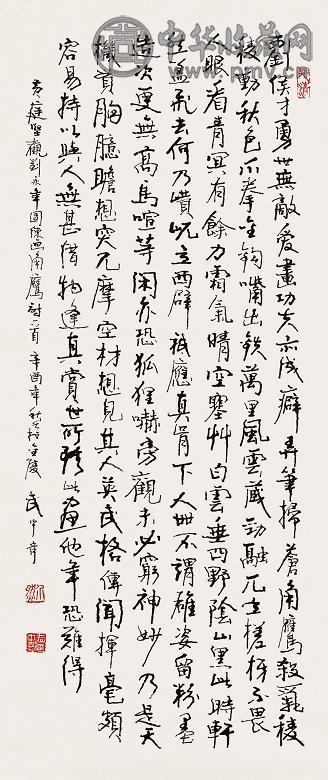 劉侯才勇世無敵愛畫功夫亦成癖弄筆掃蒼角鷹殺氣稜
稜動秋色爪拳金鉤嘴出鐵萬里風雲藏勁翮兀立槎枒不畏
人眼看青冥有餘力霜氣晴空塞艸白雲垂四野陰山黑此時軒
然盍飛去何乃巑岏立西壁祇應真骨下人世不謂雄姿留粉墨
造次更無高鳥喧等閑亦恐狐狸嚇旁觀未必窮神妙乃是天
機貫胸臆瞻想突兀摩空材想見其人英武格傳聞揮毫頗
容易持以與人無甚惜物逢真賞世所珍此畫他年恐難得
黃庭堅觀劉永年團練畫角鷹詩一首 辛酉年秋於金陵 武中奇
中华收藏网